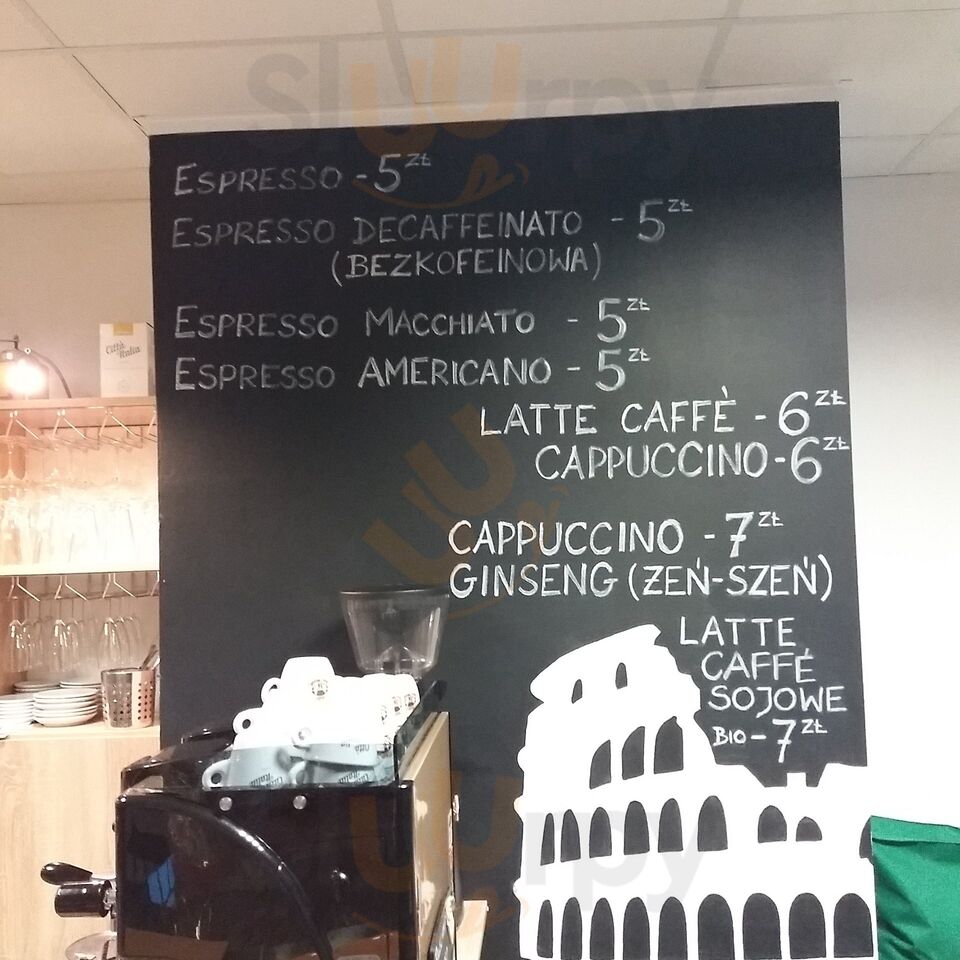 Sluurpy
ESPRESSO - 5 ZŁ
ESPRESSO DECAFFEINATO - 5 ZŁ
(BEZKOFEINOWA)
ESPRESSO MACCHIATO - 5 ZŁ
ESPRESSO AMERICANO - 5 ZŁ
LATTE CAFFÈ - 6 ZŁ
CAPPUCCINO - 6 ZŁ
CAPPUCCINO - 7 ZŁ
GINSENG (ŻEŃ-SZEŃ)
LATTE
CAFFÉ
SOJOWE
BIO - 7 ZŁ
Città
Italia